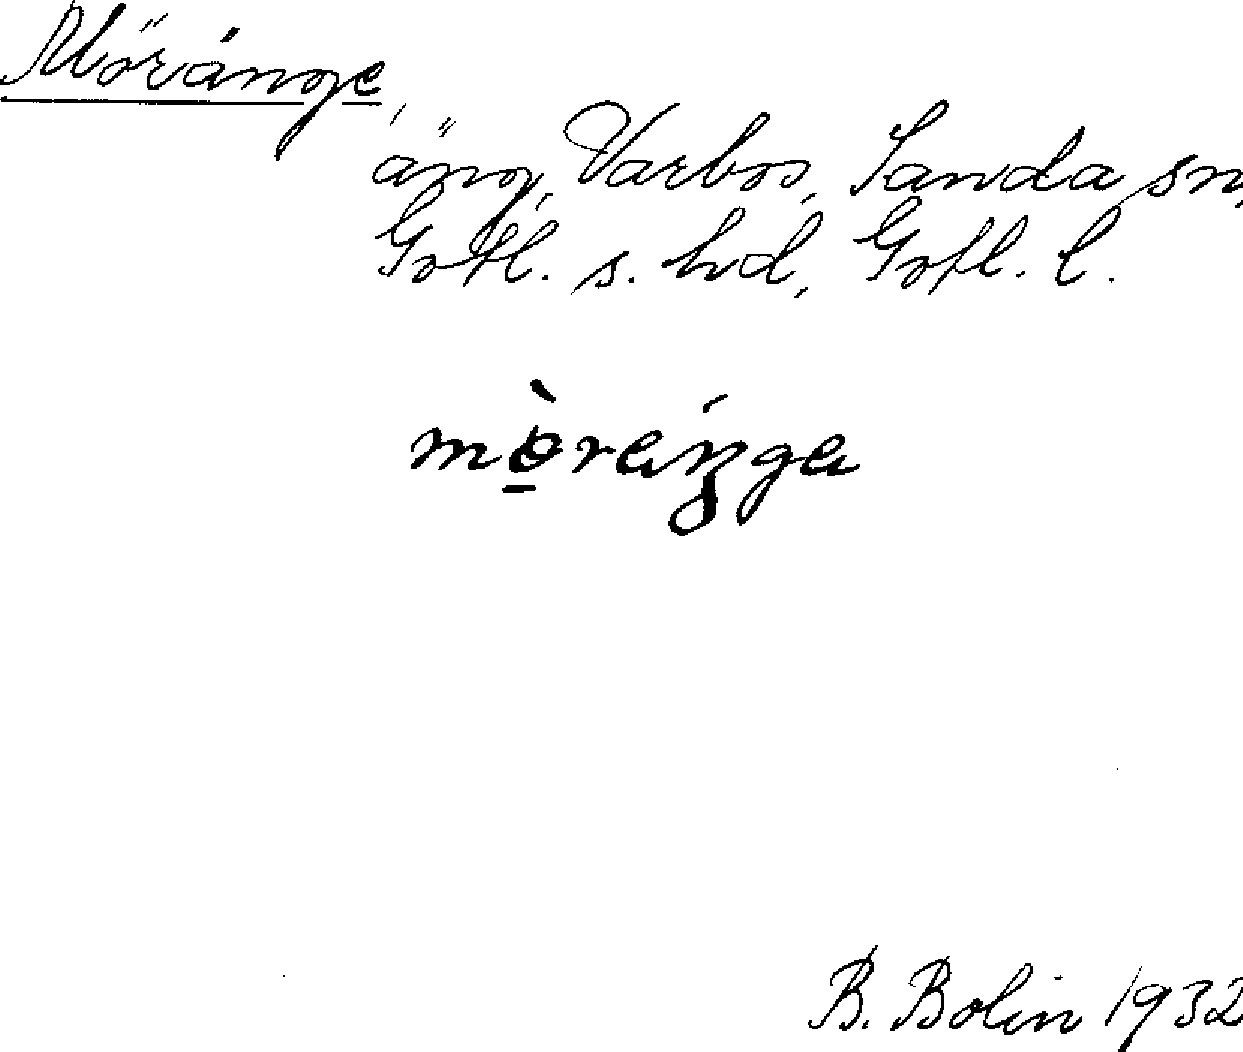 Möränge
äng, Varbos, Sanda sn,
Gotl. s. hd, Gotl. l.
mö̀ráŋga
B. Bolin 1932